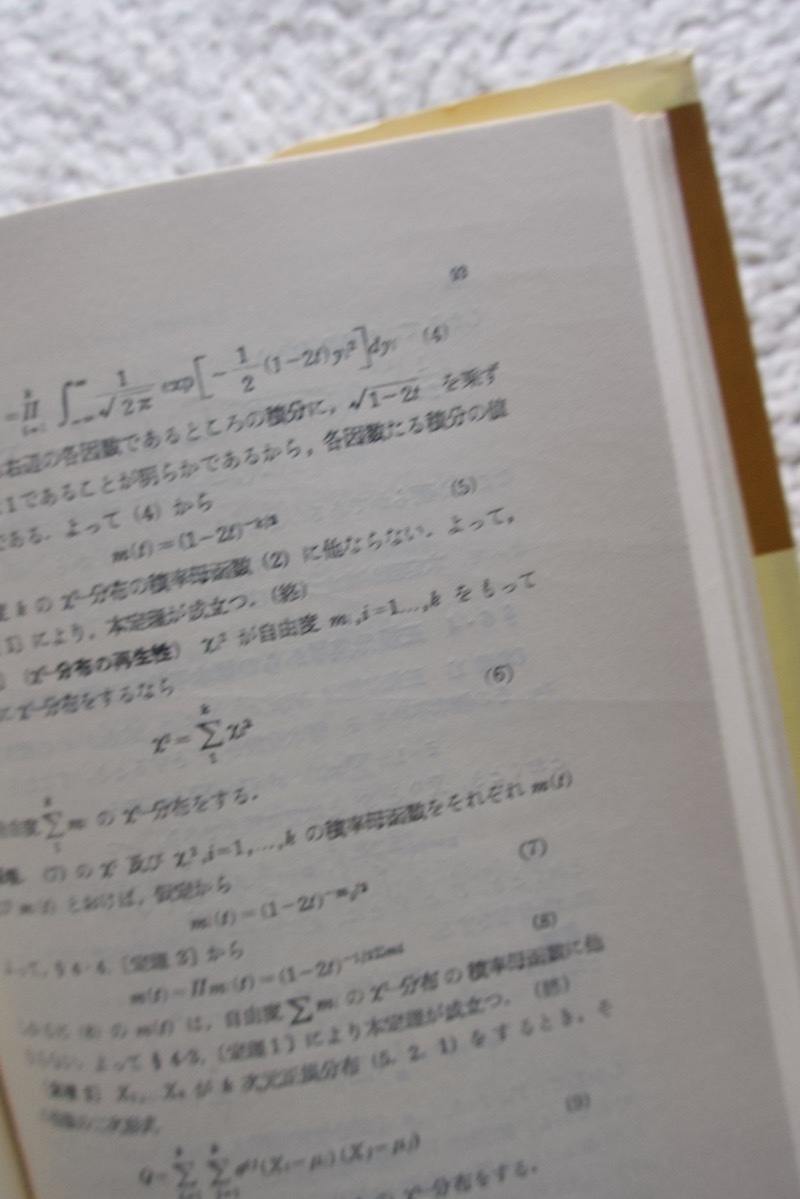 =∏ ∫ 1/√2π exp[-1/2 (1-2t)yᵢ²]dyᵢ (4)
右辺の各因数であるところの積分に，√1-2t を乗ず
1であることが明らかであるから，各因数たる積分の値
である．よって (4) から
m(t)=(1-2t)^{-k/2} (5)
k の χ²-分布の積率母函数 (2) に他ならない．よって，
により，本定理が成立つ．(終)
(χ²-分布の再生性) χᵢ² が自由度 mᵢ,i=1...,k をもって
に χ²-分布をするなら
χ²=∑₁ᵏ χᵢ² (6)
自由度∑₁ᵏ mᵢ の χ²-分布をする．
の χ² 及び χᵢ²,i=1,...,k の積率母函数をそれぞれ m(t)
mᵢ(t) とおけば，仮定から (7)
mᵢ(t)=(1-2t)^{-mᵢ/2}
よって，§4・4,〔定理3〕から (8)
m(t)=Πmᵢ(t)=(1-2t)^{-1/2Σmi}
の m(t) は，自由度∑mᵢ の χ²-分布の積率母函数に他
ならない．よって§4・3,〔定理1〕により本定理が成立つ．(終)
が k 次元正規分布 (5. 2. 1) をするとき，そ
の二次形式
Q=∑∑ (Xᵢ-μᵢ)(Xⱼ-μⱼ) (9)
の χ²-分布をする．